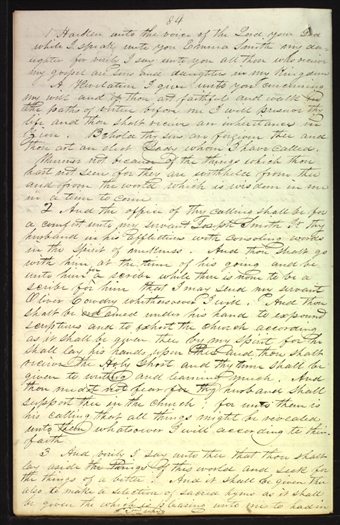 84
1 Harken unto the voice of the Lord your God
while I speak unto you Emma Smith my da-
ughter for verily I say unto you all those who receive
my gospel are Sons and daughters in my Kingdom
A Revelation I give unto you concerning
my will and if thou art faithful and walk in
the paths of virtue before me I will preserve thy
life and thou shalt receive an inheritance in
Zion. Behold thy sins are forgiven thee and
thou art an elect Lady whom I have called.
Murmur not because of the things which thou
hast not seen for they are withheld from thee
and from the world which is wisdom in me
in a time to come
2 And the office of thy calling shall be for
a comfort unto my servant Joseph Smith Jr thy
husband in his afflictions with consoling words
in the Spirit of meekness. And thou shalt go
with him at the time of his going and be
unto him for a scribe while there is none to be a
scribe for him that I may send my servant
Oliver Cowdry whithersoever I will. And thou
shalt be ordained under his hand to expound
Scriptures and to exhort the Church according
as it shall be given thee by my Spirit for he
shall lay his hands upon thee and thou shalt
receive the Holy Ghost and thy time shall be
given to writing and learning much. And
thou needst not fear for thy husband shall
support thee in the Church for unto them is
his calling that all things might be revealed
unto them whatsoever I will according to their
faith.
3 And verily I say unto thee that thou shalt
lay aside the things of this world and seek for
the things of a better. And it shall be given thee
also to make a selection of sacred hyms as it shall
be given the which is pleasing unto me to be had in